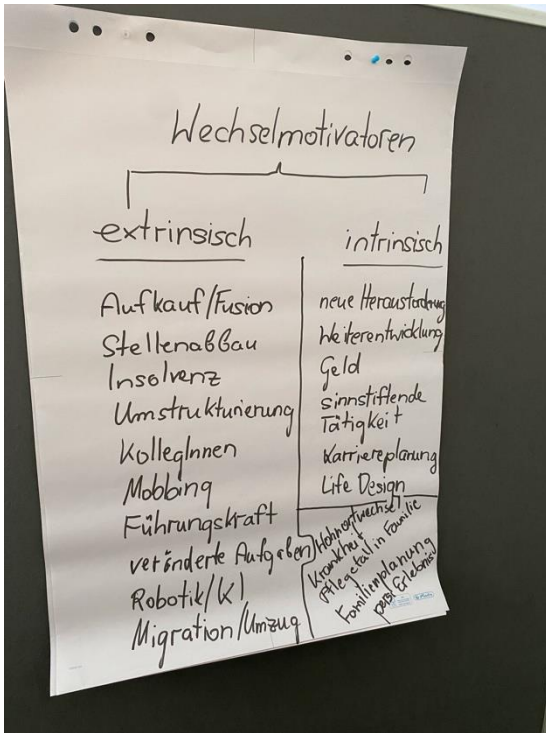 Wechselmotivatoren
extrinsisch
Aufkauf/Fusion
Stellenabbau
Insolvenz
Umstrukturierung
KollegInnen
Mobbing
Führungskraft
veränderte Aufgaben
Robotik/KI
Migration/Umzug
intrinsisch
neue Herausforderung
Weiterentwicklung
Geld
sinnstiftende
Tätigkeit
Karriereplanung
Life Design
Wohnortwechsel
Krankheit
Pflegefall in Familie
Familienplanung
pers. Erlebnis